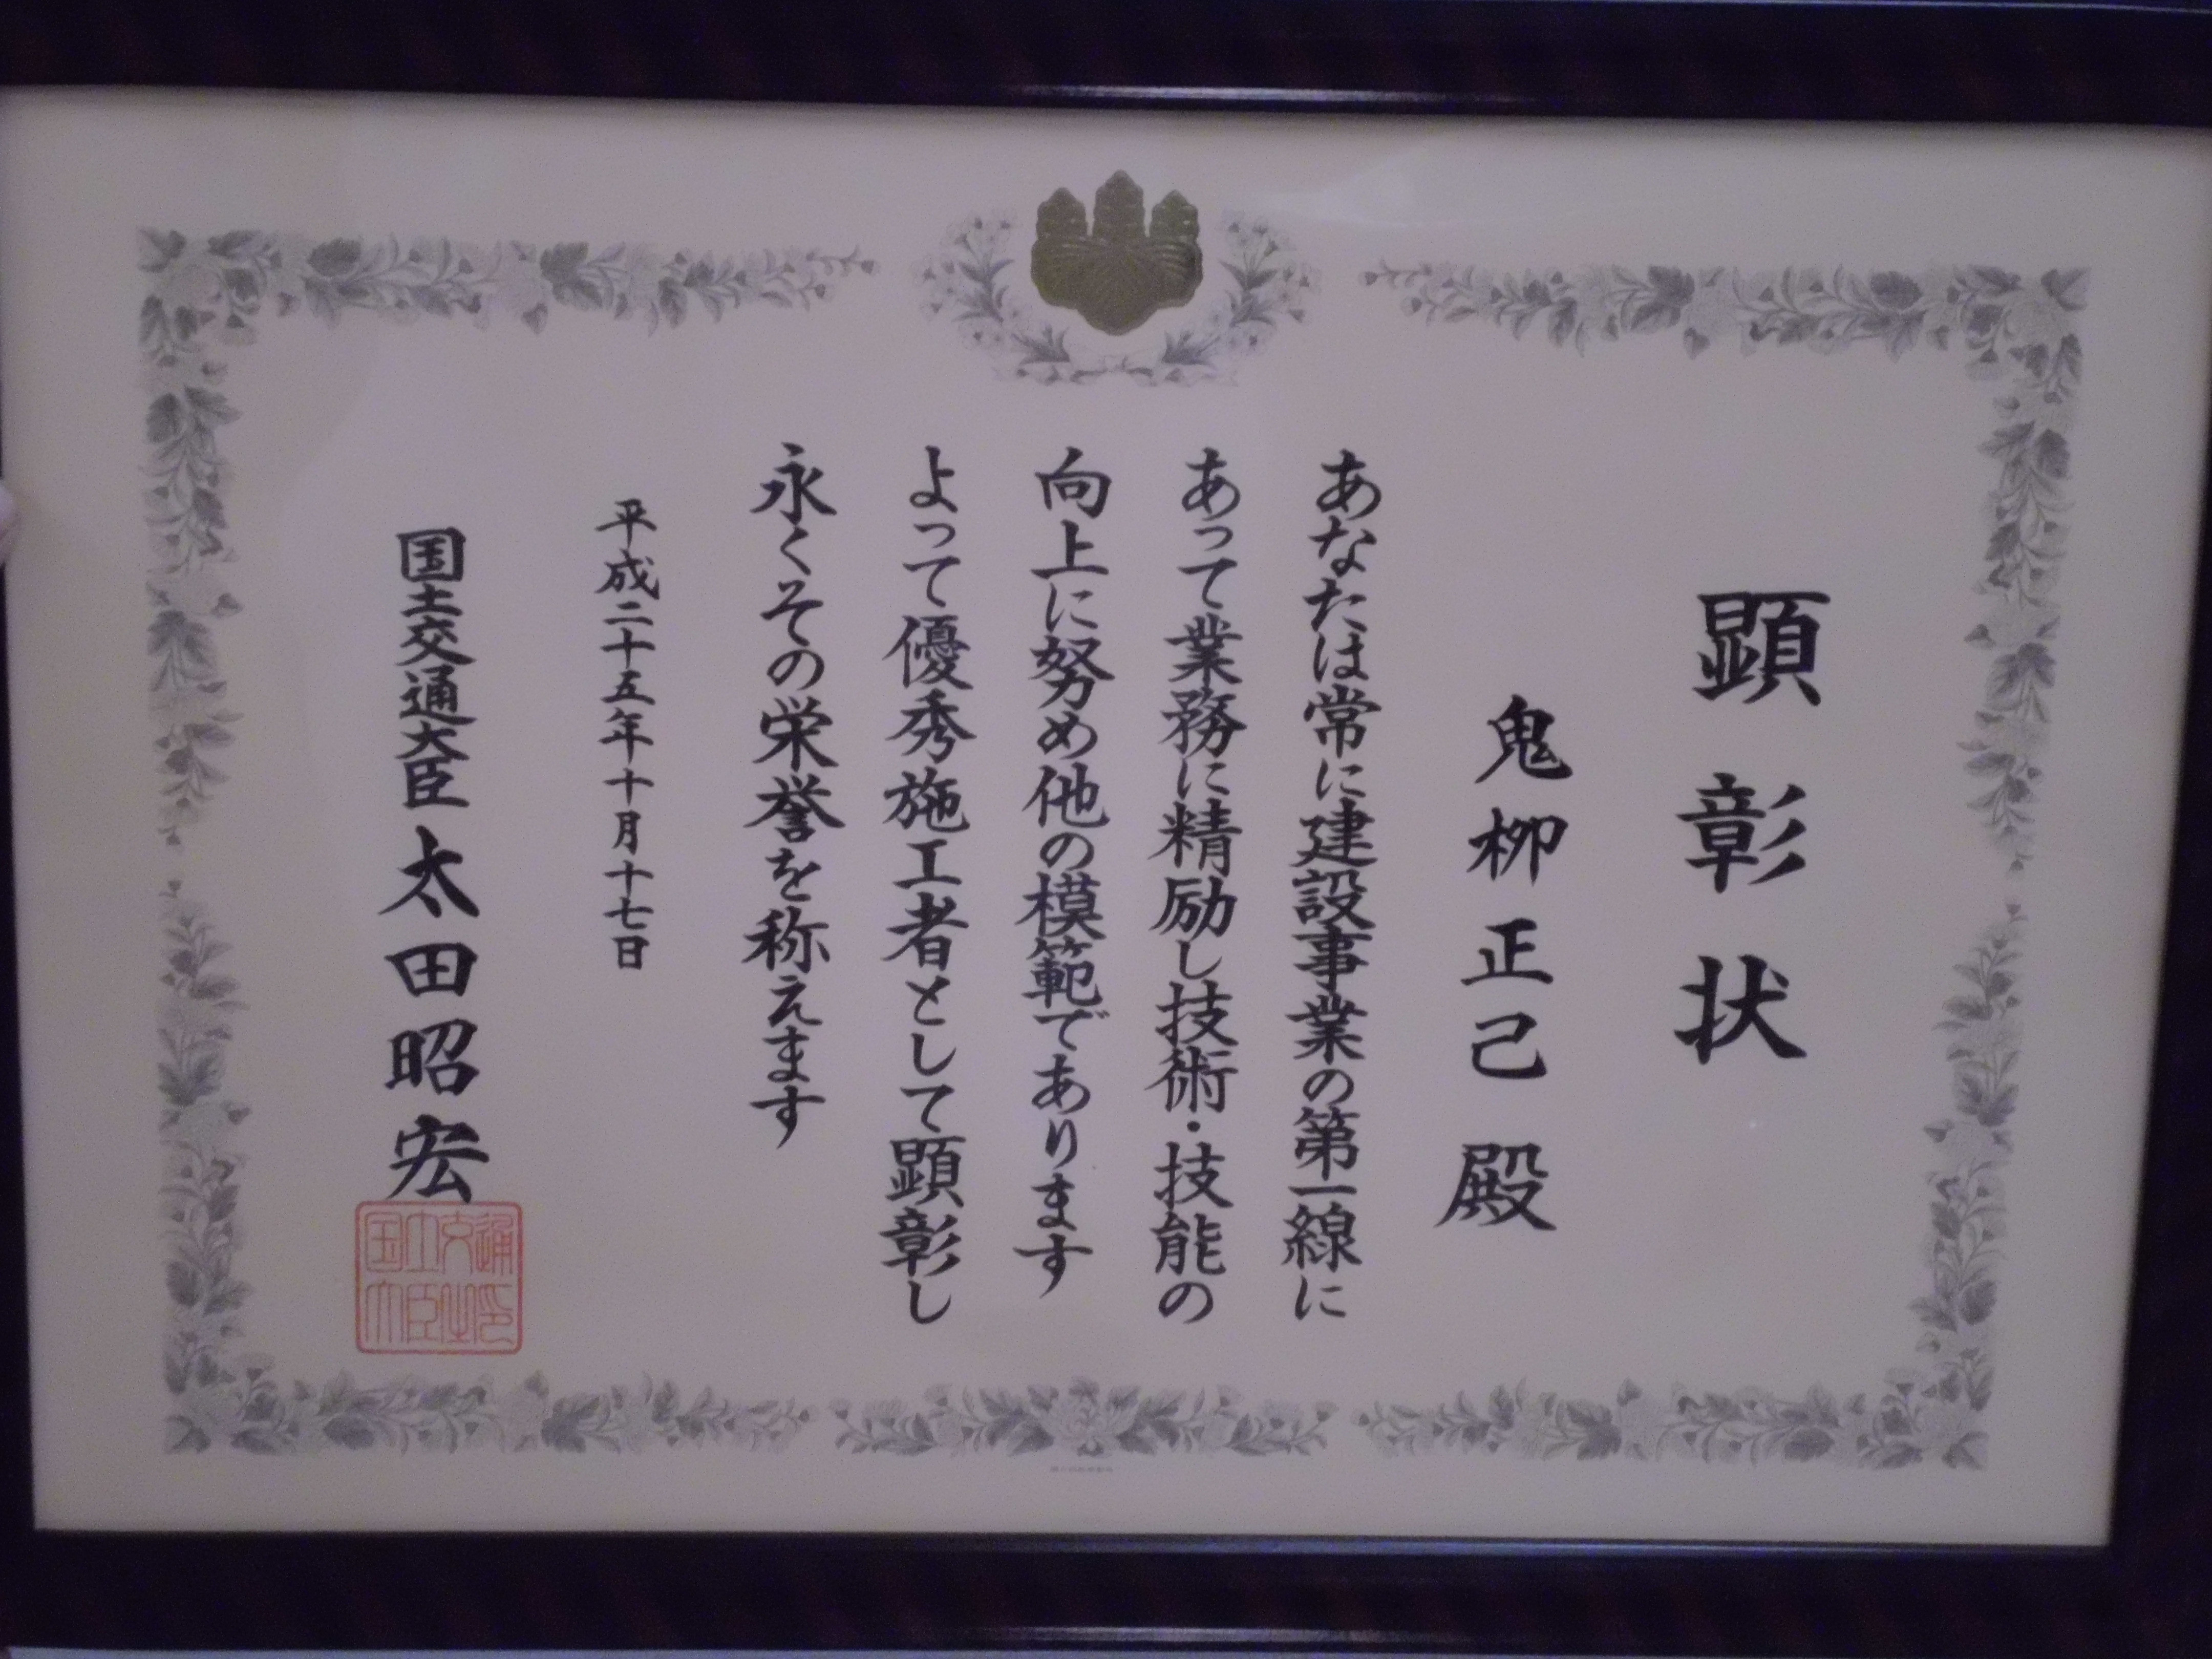 顕彰状
鬼柳正己殿
あなたは常に建設事業の第一線に
あって業務に精励し技術・技能の
向上に努め他の模範であります
よって優秀施工者として顕彰し
永くその栄誉を称えます
平成二十五年十月十七日
国土交通大臣 太田昭宏
国土交通
大臣之印